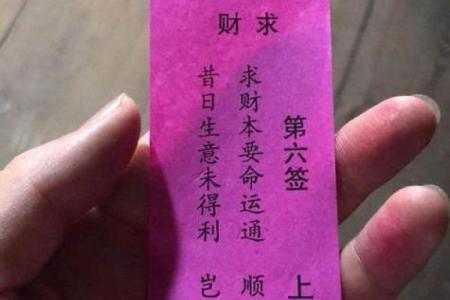 求财
第六签 上
求财本要命运通 顺
昔日生意未得利 岂